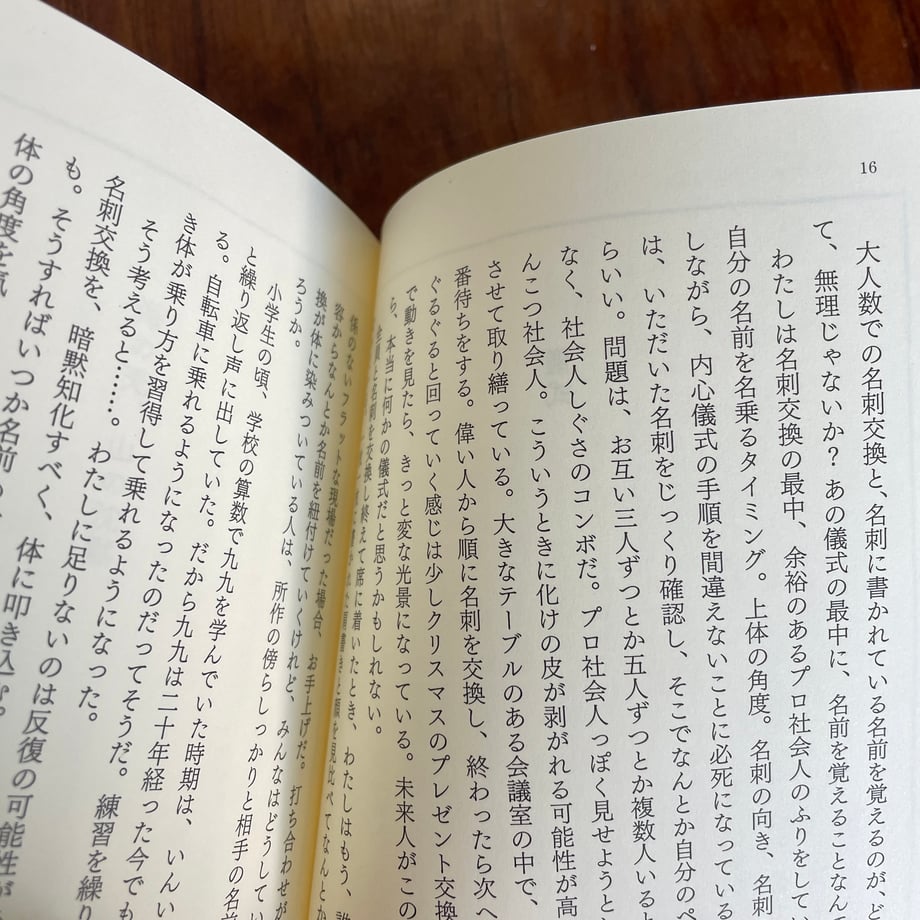 16
大人数での名刺交換と、名刺に書かれている名前を覚えるのが、
て、無理じゃないか? あの儀式の最中に、名前を覚えることなん
わたしは名刺交換の最中、余裕のあるプロ社会人のふりをして、
自分の名前を名乗るタイミング。上体の角度。名刺の向き、名刺
しながら、内心儀式の手順を間違えないことに必死になっている
は、いただいた名刺をじっくり確認し、そこでなんとか自分のペ
らいい。問題は、お互い三人ずつとか五人ずつとか複数人いると
なく、社会人しぐさのコンボだ。プロ社会人っぽく見せようと
んこつ社会人。こういうときに化けの皮が剥がれる可能性が高
させて取り繕っている。大きなテーブルのある会議室の中で、
番待ちをする。偉い人から順に名刺を交換し、終わったら次へ
ぐるぐると回っていく感じは少しクリスマスのプレゼント交換
で動きを見たら、きっと変な光景になっている。未来人がこの
ら、本当に何かの儀式だと思うかもしれない。
全員と名刺を交換し終えて席に着いたとき、わたしはもう、誰
肩書きと顔を見比べてなんとか
係のないフラットな現場だった場合、お手上げだ。打ち合わせが
容からなんとか名前を紐付けていくけれど、みんなはどうしてい
換が体に染みついている人は、所作の傍らしっかりと相手の名前
ろうか。
小学生の頃、学校の算数で九九を学んでいた時期は、いんい
と繰り返し声に出していた。だから九九は二十年経った今でも
る。自転車に乗れるようになったのだってそうだ。練習を繰り
き体が乗り方を習得して乗れるようになった。
そう考えると……。わたしに足りないのは反復の可能性が
名刺交換を、暗黙知化すべく、体に叩き込む。
も。そうすればいつか名前の
体の角度を気